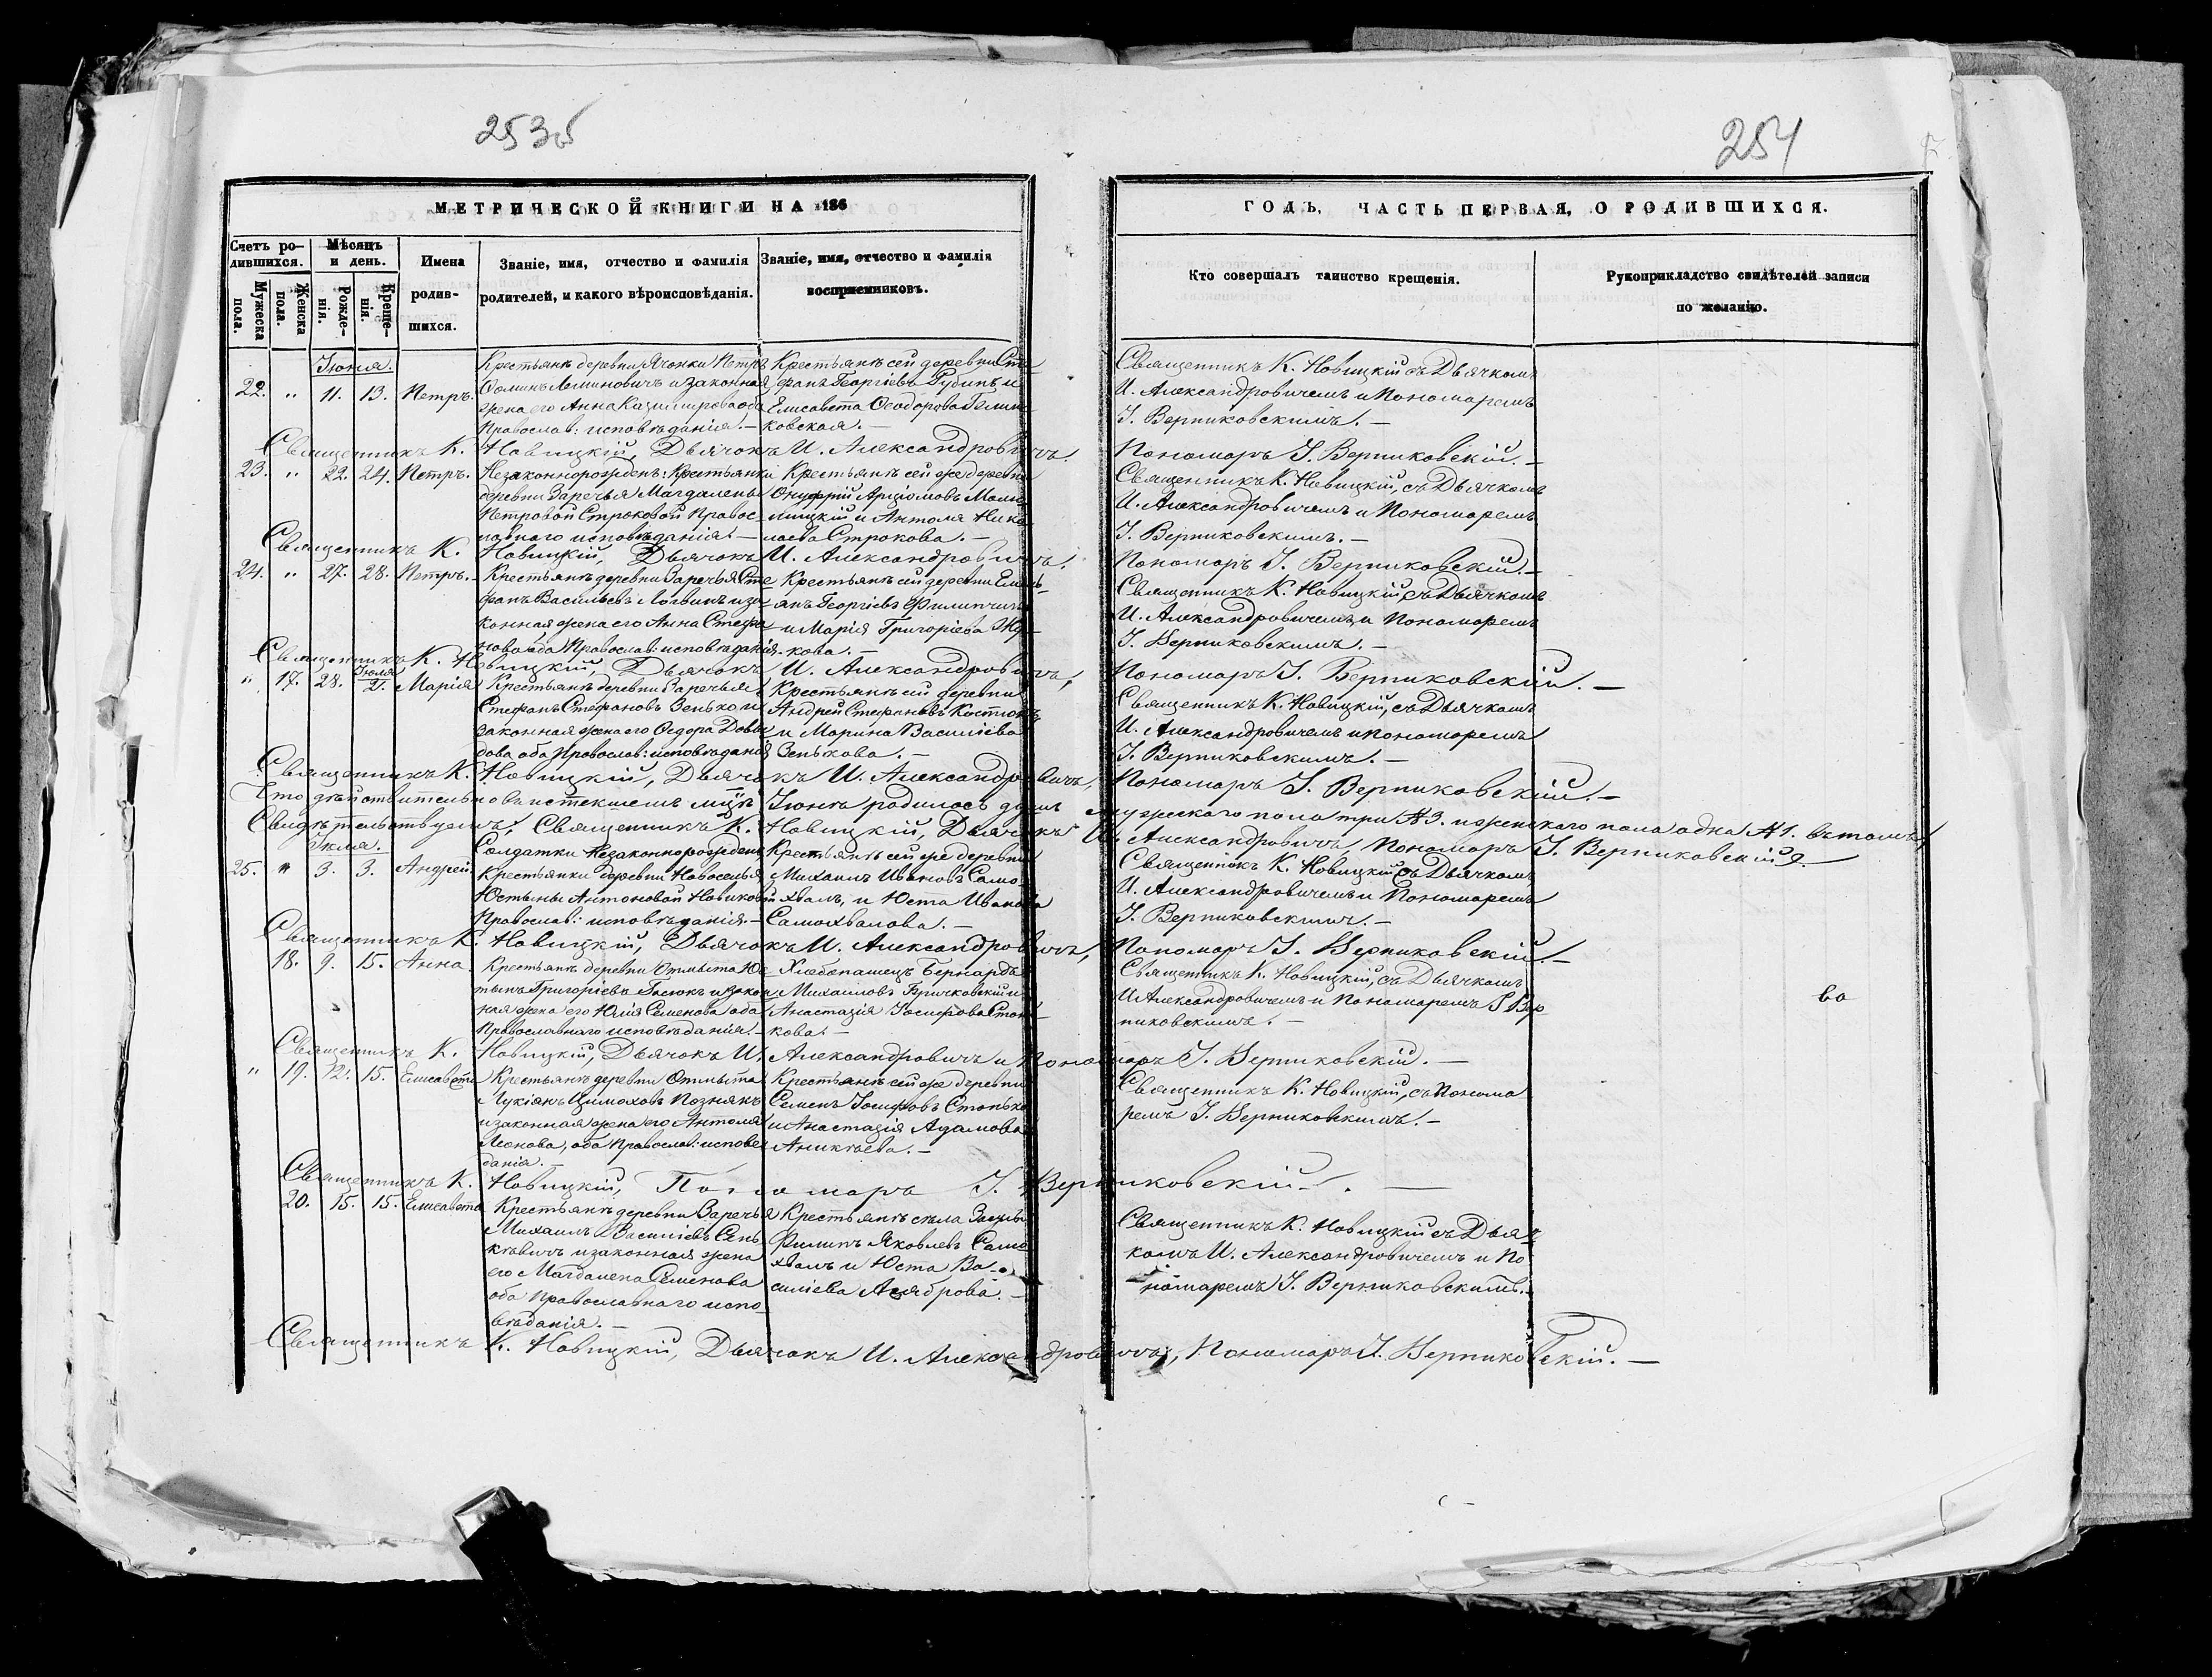 253б
254
МЕТРИЧЕСКОЙ КНИГИ НА 186
ГОДЪ, ЧАСТЬ ПЕРВАЯ, О РОДИВШИХСЯ.
Счетъ ро-
дившихся.
Мужеска
пола.
Женска
пола.
Мѣсяцъ
и день.
Рожде-
нія.
Креще-
нія.
Имена
родив-
шихся.
Званіе, имя, отчество и фамилія
родителей, и какого вѣроисповѣданія.
Званіе, имя, отчество и фамилія
воспріемниковъ.
Кто совершалъ таинство крещенія.
Рукоприкладство свидѣтелей записи
по желанію.
Іюня.
22. " 11. 13. Петръ.
Крестьянъ деревни Петръ
и законная
жена его Анна Казимирова оба
Православ: исповѣданія.—
Крестьянъ сей деревни Сте-
фанъ Георгіевъ Рубинъ и
Елисавета Ѳеодорова
ковская.—
Священникъ К. Новицкій съ Дьячкомъ
И. Александровичемъ и Пономаремъ
І. Верниковскимъ.—
Священникъ К. Новицкій, Дьячокъ И. Александровичъ Пономарь І. Верниковскій.—
23. " 22. 24. Петръ.
Незаконнорожден: Крестьянки
деревни Заречья Магдалены
Петровой Строковой Правос-
лавнаго исповѣданія.—
Крестьянъ сей же деревни
Онуфрій
и Антоля Нико-
лаева Строкова.—
Священникъ К. Новицкій, съ Дьячкомъ
И. Александровичемъ и Пономаремъ
І. Верниковскимъ.—
Священникъ К. Новицкій, Дьячокъ И. Александровичъ, Пономарь І. Верниковскій.—
24. " 27. 28. Петръ.
Крестьянъ деревни Заречья Сте
фанъ Васильевъ и за-
конная жена его Анна Стефа
нова оба Православ: исповѣданія
Крестьянъ сей деревни Емель-
янъ Георгіевъ Филипчикъ
и Марія Григоріева
кова.—
Священникъ К. Новицкій съ Дьячкомъ
И. Александровичемъ и Пономаремъ
І. Верниковскимъ.—
Священникъ К. Новицкій, Дьячокъ И. Александровичъ, Пономарь І. Верниковскій.—
" 17. 28. Іюля 2. Марія
Крестьянъ деревни Заречья
Стефанъ Стефановъ Зенько и
законная жена его Ѳедора Давы
дова оба Православ: исповѣданія
Крестьянъ сей деревни
Андрей Стефановъ Костюкъ
и Марина Василіева
Зенькова.—
Священникъ К. Новицкій, съ Дьячкомъ
И. Александровичемъ и Пономаремъ
І. Верниковскимъ.—
Священникъ К. Новицкій, Дьячокъ И. Александровичъ, Пономарь І. Верниковскій.—
Что дѣйствительно въ истекшемъ м҃цѣ Іюнѣ родилось душъ мужескаго пола три №3. и женскаго пола одна №1. въ томъ
Свидѣтельствуемъ: Священникъ К. Новицкій, Дьячокъ И. Александровичъ, Пономарь І. Верниковскій.—
Іюля.
25. " 3. 3. Андрей.
Солдатки Незаконнорожден
Крестьянки деревни Новоселья
Юстыны Антоновой Новиковой
Православ: исповѣданія.—
Крестьянъ сей же деревни
Михаилъ Ивановъ Само-
хвалъ, и Юста Иванова
Самохвалова.—
Священникъ К. Новицкій съ Дьячкомъ
И. Александровичемъ и Пономаремъ
І. Верниковскимъ.—
Священникъ К. Новицкій, Дьячокъ И. Александровичъ, Пономарь І. Верниковскій.—
18. 9. 15. Анна.
Крестьянъ деревни Отмыта Юс
тынъ Григоріевъ и закон
ная жена его Юлія Семенова оба
Православнаго исповѣданія.—
Хлебопашецъ Бернардъ
Михаиловъ Бричковскій и
Анастазія Іосифова Стонь-
кова.—
Священникъ К. Новицкій, съ Дьячкомъ
И Александровичемъ и Пономаремъ І Вер
никовскимъ.—
во
Священникъ К. Новицкій, Дьячокъ И. Александровичъ и Пономарь І. Верниковскій.—
" 19. 12. 15. Елисавета
Крестьянъ деревни Отмыта
Лукіянъ Цимоховъ Познякъ
и законная жена его Антоля
Леонова, оба Православ: исповѣ
данія.—
Крестьянъ сей же деревни
Семенъ Іосифовъ Стонько
и Анастазія Адамова
Аникѣева.—
Священникъ К. Новицкій, съ Понома
ремъ І. Верниковскимъ.—
Священникъ К. Новицкій, Пономарь І. Верниковскій.—
20. 15. 15. Елисавета
Крестьянъ деревни Заречья
Михаилъ Василіевъ Сень
кѣвичъ и законная жена
его Магдалена Семенова
оба Православнаго испо-
вѣданія.—
Крестьянъ села
Филипъ Яковлевъ Само
хвалъ и Юста Ва-
силіева
Священникъ К. Новицкій съ Дьяч-
комъ И. Александровичемъ и По
номаремъ І. Верниковскимъ.
Священникъ К. Новицкій, Дьячокъ И. Александровичъ, Пономарь І. Верниковскій.—